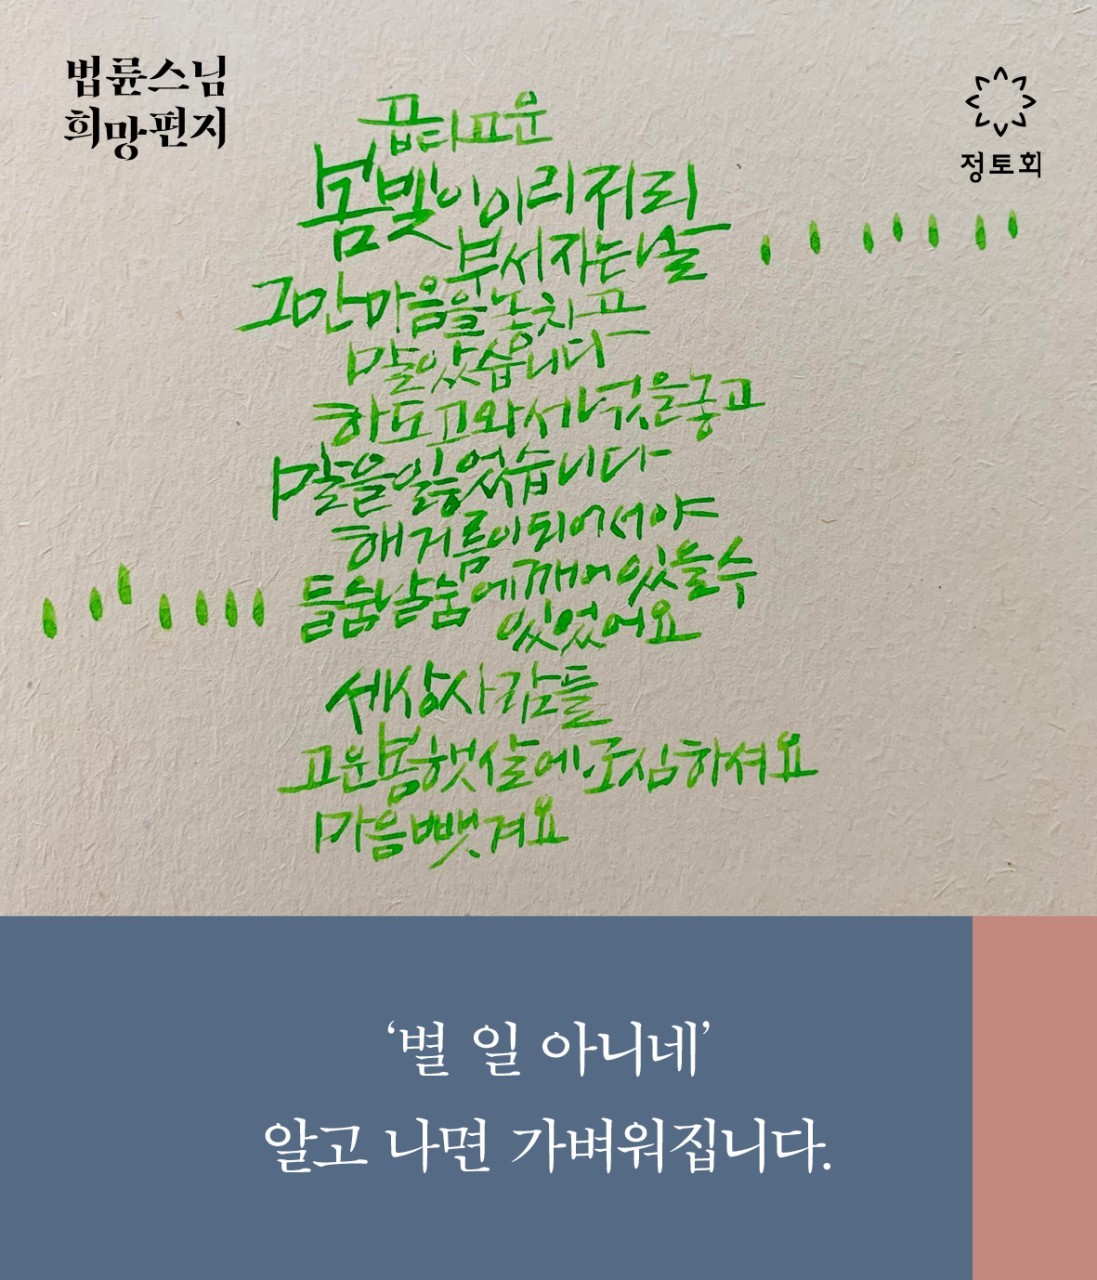 법륜스님
희망편지
정토회
곱디고운
봄빛이 이리저리
부서지는 날
그만 마음을 놓치고
말았습니다
하도 고와서 넋을 놓고
말을 잃었습니다
해거름이 되어서야
들숨날숨에 깨어있을 수
있었어요
세상사람들
고운 봄햇살에 조심하셔요
마음 뺏겨요
‘별 일 아니네’
알고 나면 가벼워집니다.